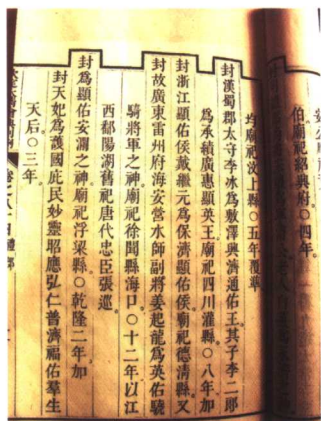 伯廟祀紹興府○四年
均廟祀汶上縣○五年覆準
封漢蜀郡太守李冰為敷澤興濟通佑王其子李二郎
為承績廣惠顯英王廟祀四川灌縣○八年加
封浙江顯佑侯戴繼元為保濟顯佑侯廟祀德清縣又
封故廣東雷州府海安營水師副將江起龍為英佑驍
騎將軍之神廟祀徐聞縣海口○十二年以江
西鄱陽湖舊祀唐代忠臣張巡
封為顯佑安瀾之神廟祀浮梁縣○乾隆二年加
封天妃為護國庇民妙靈昭應弘仁普濟福佑羣生
天后○三年